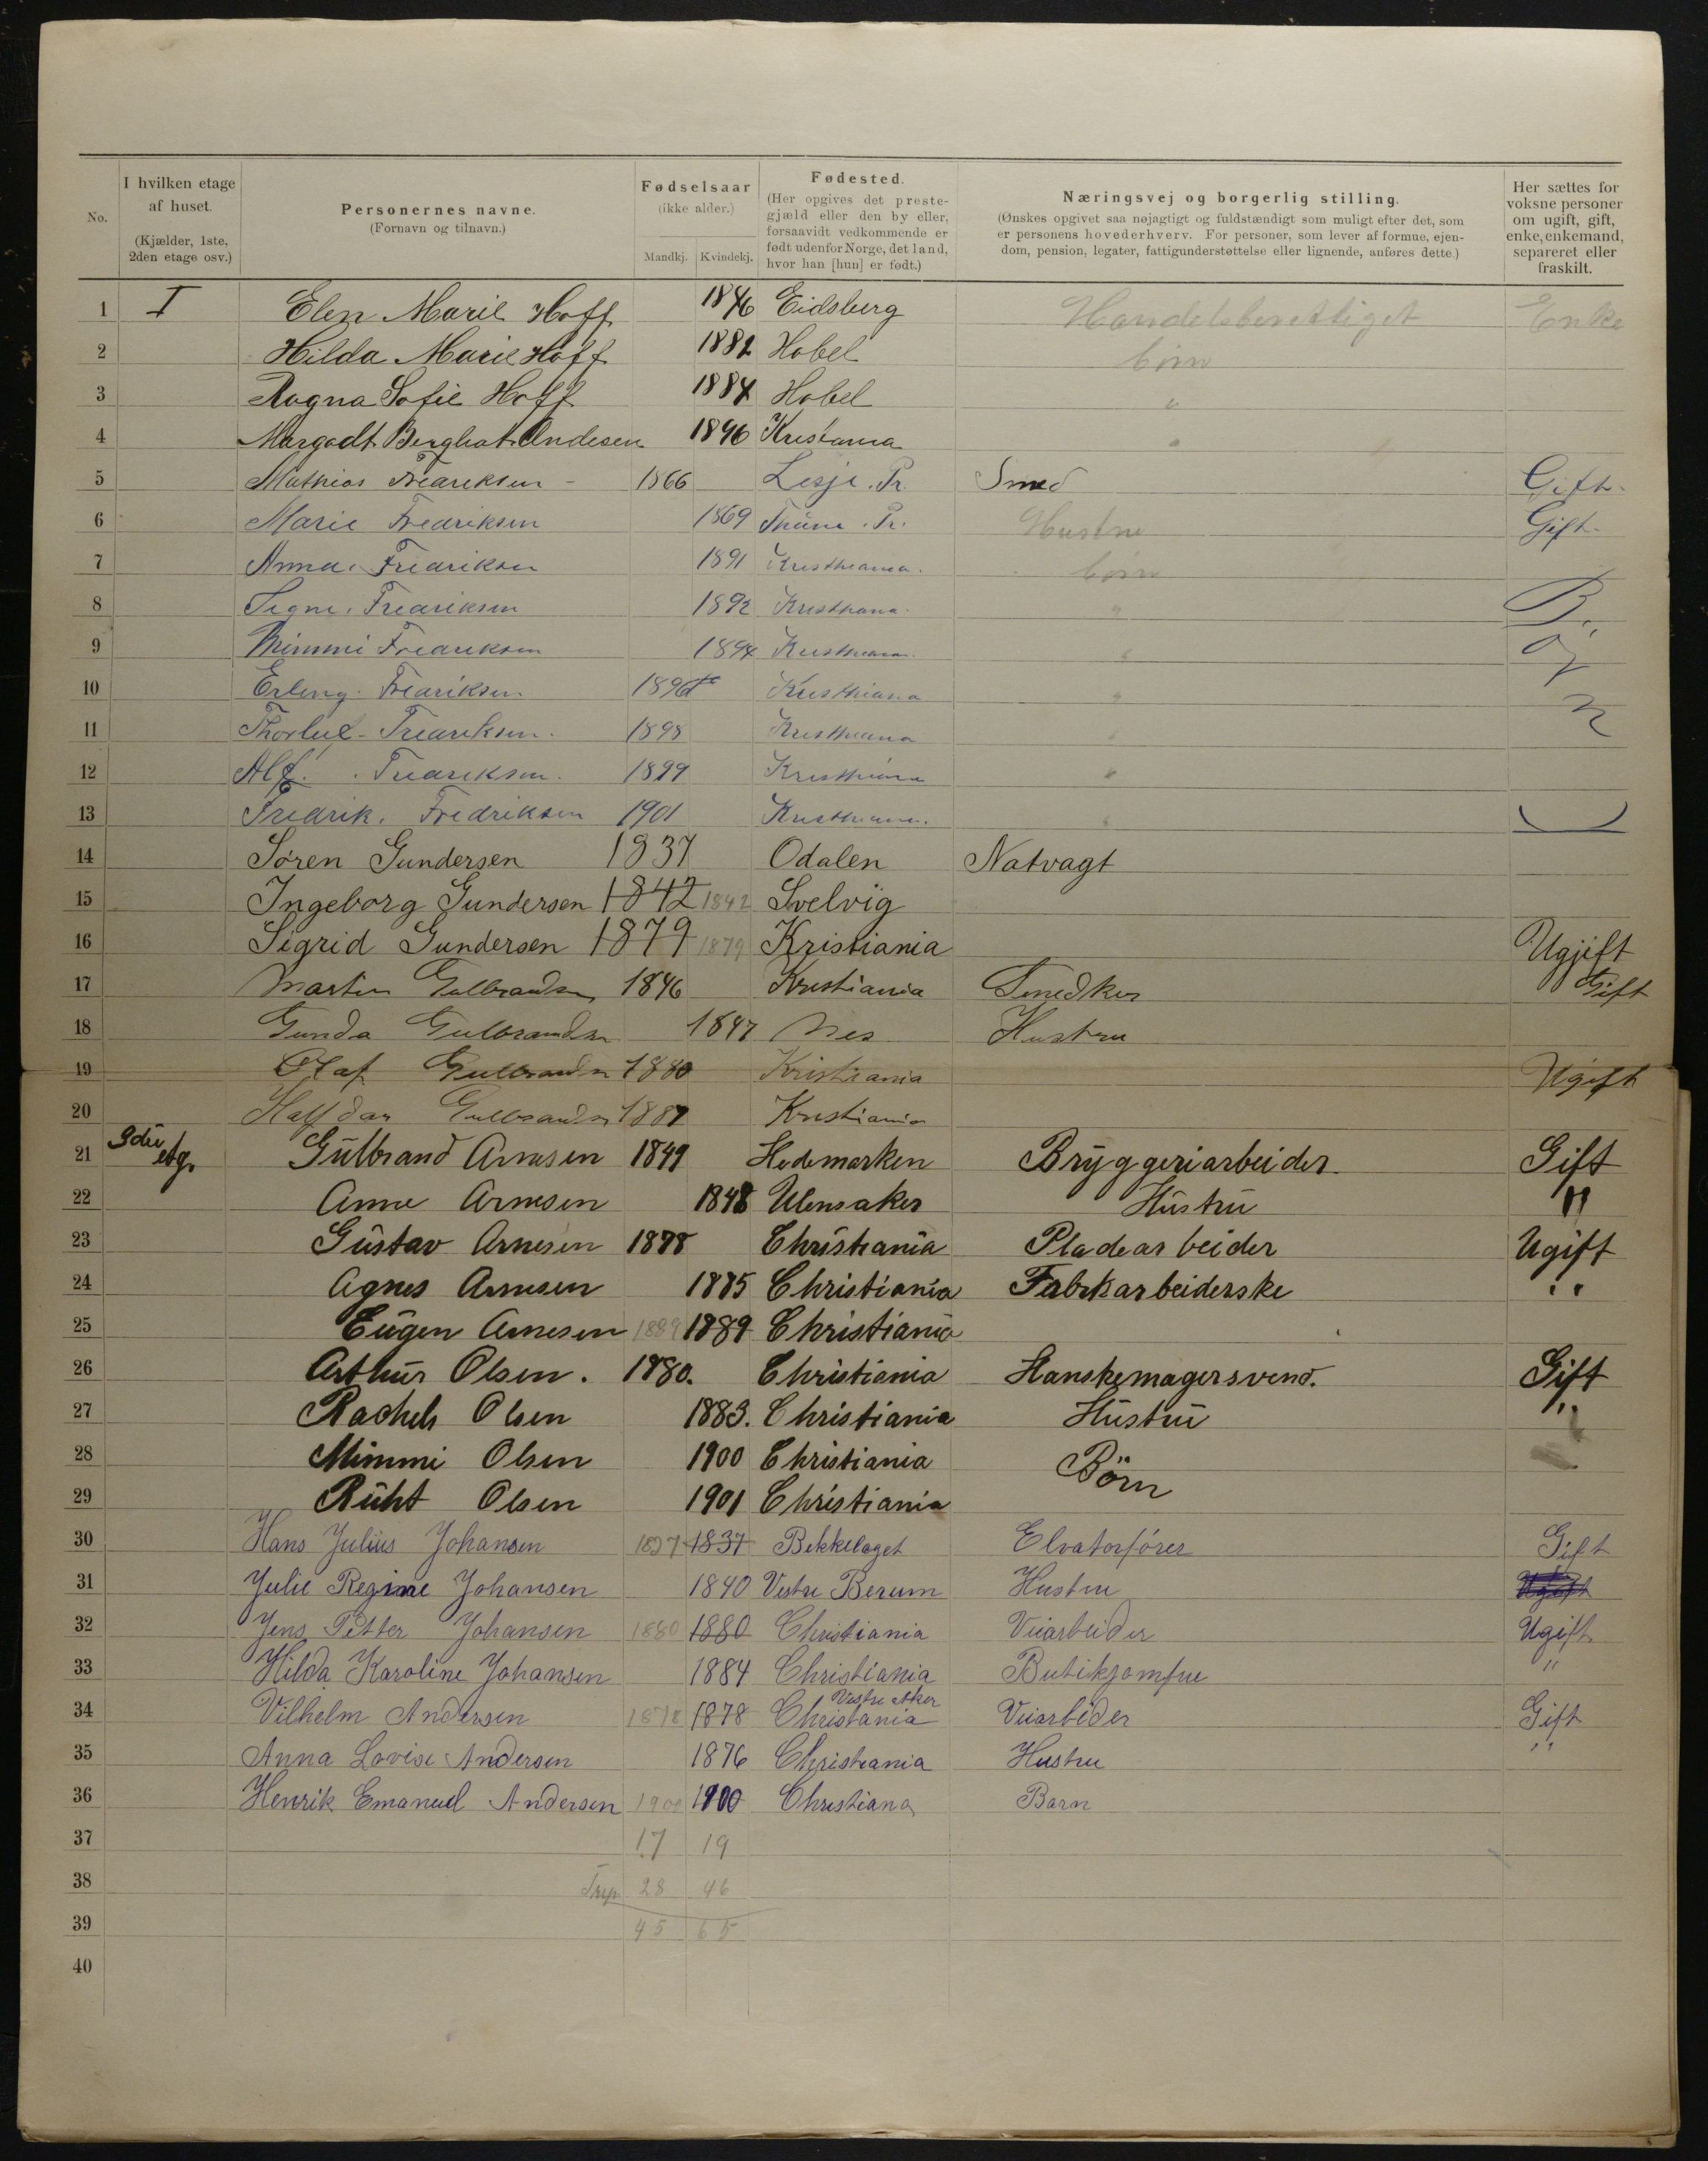 No.
I hvilken etage af huset. (Kjælder, 1ste, 2den etage osv.)
Personernes navne. (Fornavn og tilnavn.)
Fødselsaar (ikke alder.) Mandkj. Kvindekj.
Fødested. (Her opgives det prestegjæld eller den by eller, forsaavidt vedkommende er født udenfor Norge, det land, hvor han [hun] er født.)
Næringsvej og borgerlig stilling. (Ønskes opgivet saa nøjagtigt og fuldstændigt som muligt efter det, som er personens hovederhverv. For personer, som lever af formue, ejendom, pension, legater, fattigunderstøttelse eller lignende, anføres dette.)
Her sættes for voksne personer om ugift, gift, enke, enkemand, separeret eller fraskilt.
1 I Elen Marie Hoff 1846 Eidsberg Handelsberettiget Enke
2 Hilda Marie Hoff 1882 Hobel börn
3 Ragna Sofie Hoff 1884 Hobel "
4 Margodt Berghot Andesen 1896 Kristania "
5 Mathias Fredriksen - 1866 Lesje. Pr. Smed Gift.
6 Marie Fredriksen 1869 Pr. Hustru Gift.
7 Anna. Fredriksen 1891 Kristhiania. börn
8 Signe. Fredriksen 1892 Kristhiana. " B
9 Mimmi Fredriksen 1894 Kristhiania. " ø
10 Erling. Fredriksen 1896 Kristhiana " r
11 Fredriksen. 1898 Kristhiana " n
12 Alf. Fredriksen. 1899 Kristhiana "
13 Fredrik. Fredriksen 1901 Kristhiana. "
14 Søren Gundersen 1837 Odalen Natvagt
15 Ingeborg Gundersen 1842 1842 Svelvig
16 Sigrid Gundersen 1879 1879 Kristiania Ugjift
17 Martin Gulbrandsen 1846 Kristiania Snedker Gift
18 Gunda Gulbrandsen 1847 Nes Hustru
19 Olaf Gulbrandsen 1880 Kristiania Ugift
20 Halfdan Gulbrandsen 1887 Kristiania
21 etg. Gulbrand Arnesen 1849 Hedemarken Bryggeriarbeider. Gift
22 Anne Arnesen 1848 Ulensaker Hustru "
23 Gustav Arnesen 1878 Christiania Pladearbeider Ugift
24 Agnes Arnesen 1885 Christiania Fabrkarbeiderske "
25 Eugen Arnesen 1889 1889 Christiania
26 Arthur Olsen. 1880. Christiania Hanskemagersvend. Gift
27 Rachels Olsen 1883. Christiania Hustru "
28 Mimmi Olsen 1900 Christiania Börn
29 Ruht Olsen 1901 Christiania
30 Hans Julius Johansen 1837 1837 Bekkelaget Elvatorfører Gift
31 Julie Regine Johansen 1840 Vestre Berum Hustru Ugift
32 Jens Petter Johansen 1880 1880 Christiania Veiarbeider Ugift
33 Hilda Karoline Johansen 1884 Christiania Butikjomfru "
34 Vilhelm Andersen 1878 1878 Christania Vestre Aker Veiarbeider Gift
35 Anna Lovise Andersen 1876 Christiania Hustru "
36 Henrik Emanuel Andersen 1900 1900 Christiana Barn
37 17 19
38 28 46
39 45 65
40